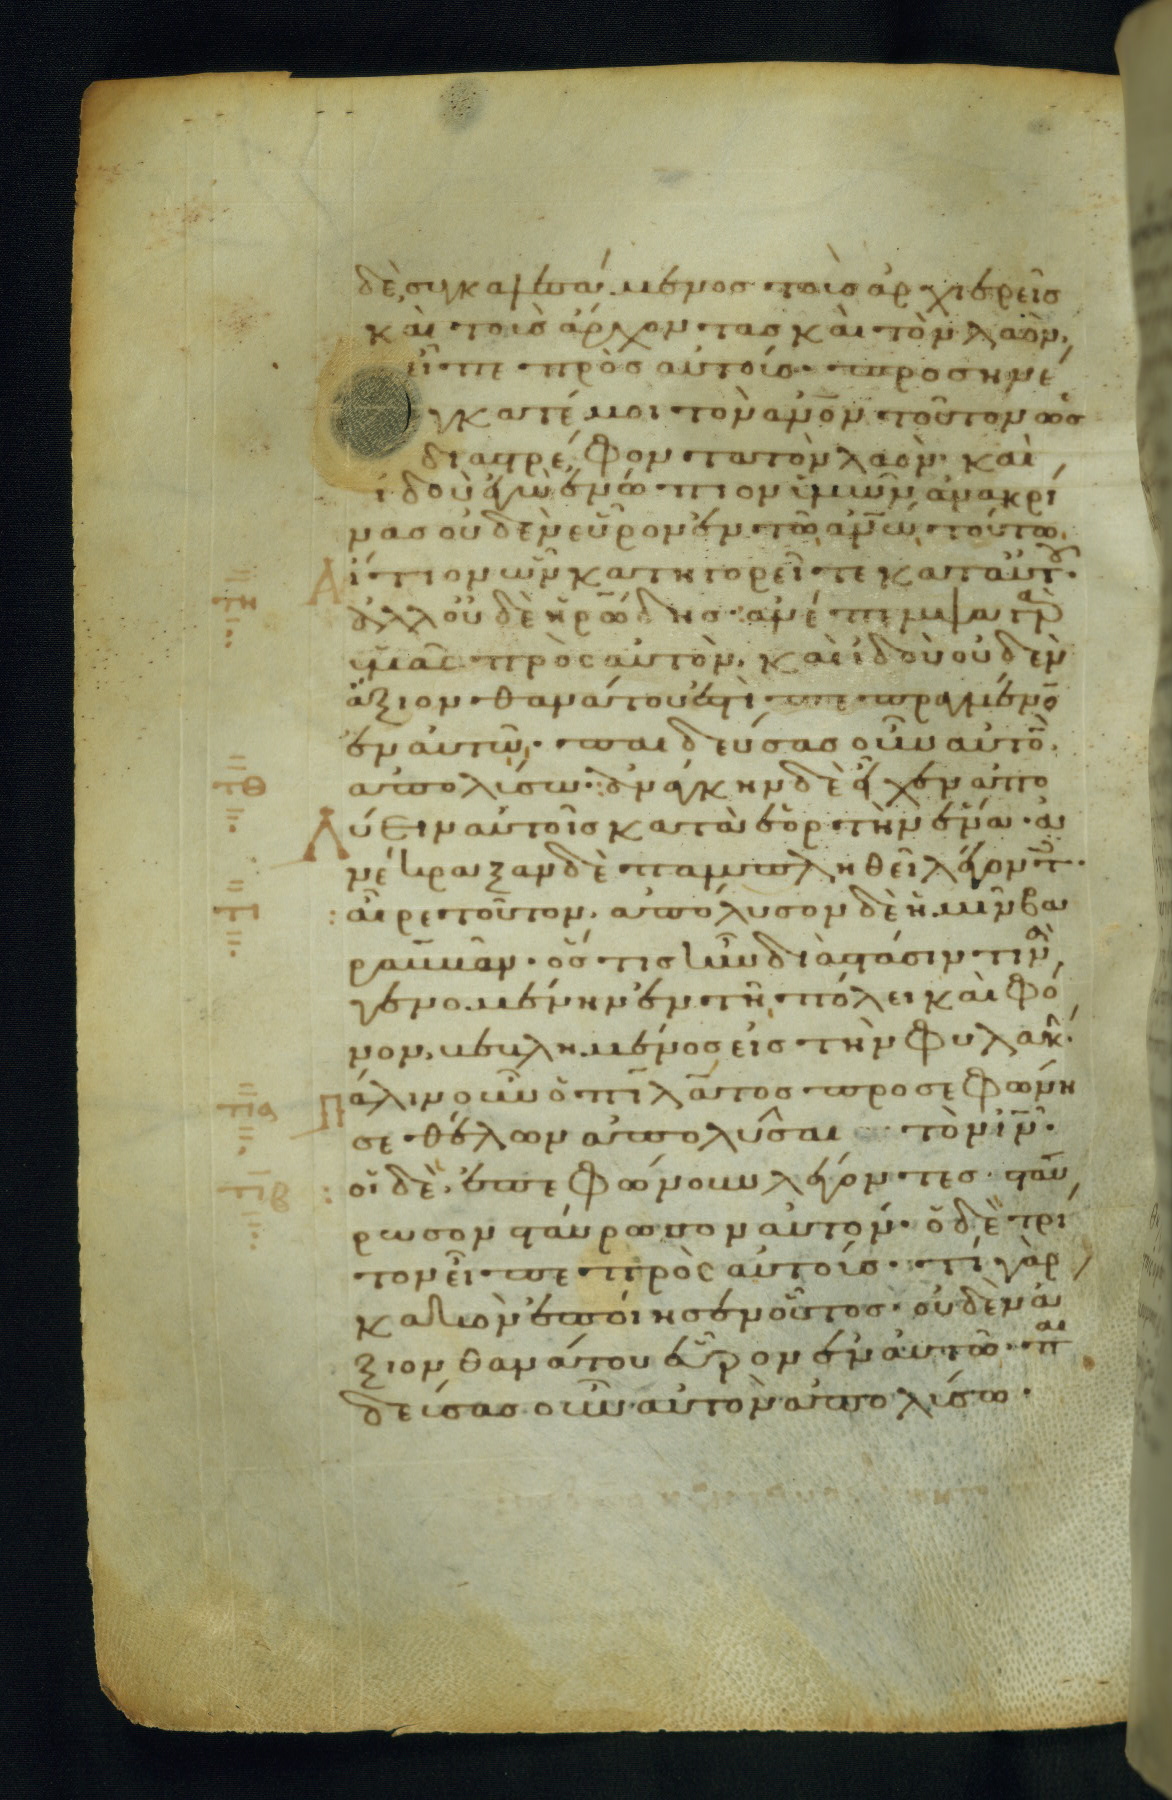 δὲ συγκαλεσάμενος τοὺς ἀρχιερεῖς
καὶ τοὺς ἄρχοντας καὶ τὸν λαὸν,
εἶπε πρὸς αὐτούς· προσηνέ
γκατέ μοι τὸν ἀνον τοῦτον ὡς
διαστρέφοντα τὸν λαὸν· καὶ
ἰδοὺ ἐγὼ ἐνώπιον ὑμῶν ἀνακρί
νας οὐδὲν εὗρον ἐν τῷ ἀνω τούτω
Αἴτιον ὧν κατηγορεῖτε κατ αὐτ·
ἀλλ οὐδὲ ἡρώδης· ἀνέπεμψα γὰρ
ὑμᾶς πρὸς αὐτὸν· καὶ ἰδοὺ οὐδὲν
ἄξιον θανάτου ἐστὶ πεπραγμένο
ἐν αὐτῷ· παιδεύσας οὖν αὐτὸ
ἀπολύσω· ἀνάγκην δὲ εἶχεν ἀπο
λύειν αὐτοῖς κατὰ ἑορτὴν ἕνα· ἀ
νέκραξαν δὲ παμπληθεῖ λέγοντ·
αἶρε τοῦτον· ἀπόλυσον δὲ ἡμῖν βα
ραββᾶν· ὅστις ἦν διὰ στάσιν τινὰ
γενομένην ἐν τῇ πόλει καὶ φό
νον, βεβλημένος εἰς τὴν φυλακ·
Πάλιν οὖν ὁ πιλᾶτος προσεφώνη
σε θέλων ἀπολῦσαι τὸν ιν·
οἱ δὲ ἐπεφώνουν λέγοντες· σταύ
ρωσον σταύρωσον αὐτόν· ὁ δὲ τρί
τον εἶπε πρὸς αὐτούς· τί γὰρ
κακὸν ἐποίησεν οὗτος· οὐδὲν ἄ
ξιον θανάτου εὗρον ἐν αὐτῷ· παι
δεύσας οὖν αὐτὸν ἀπολύσω·
τη
τθ
τι
τια
τιβ